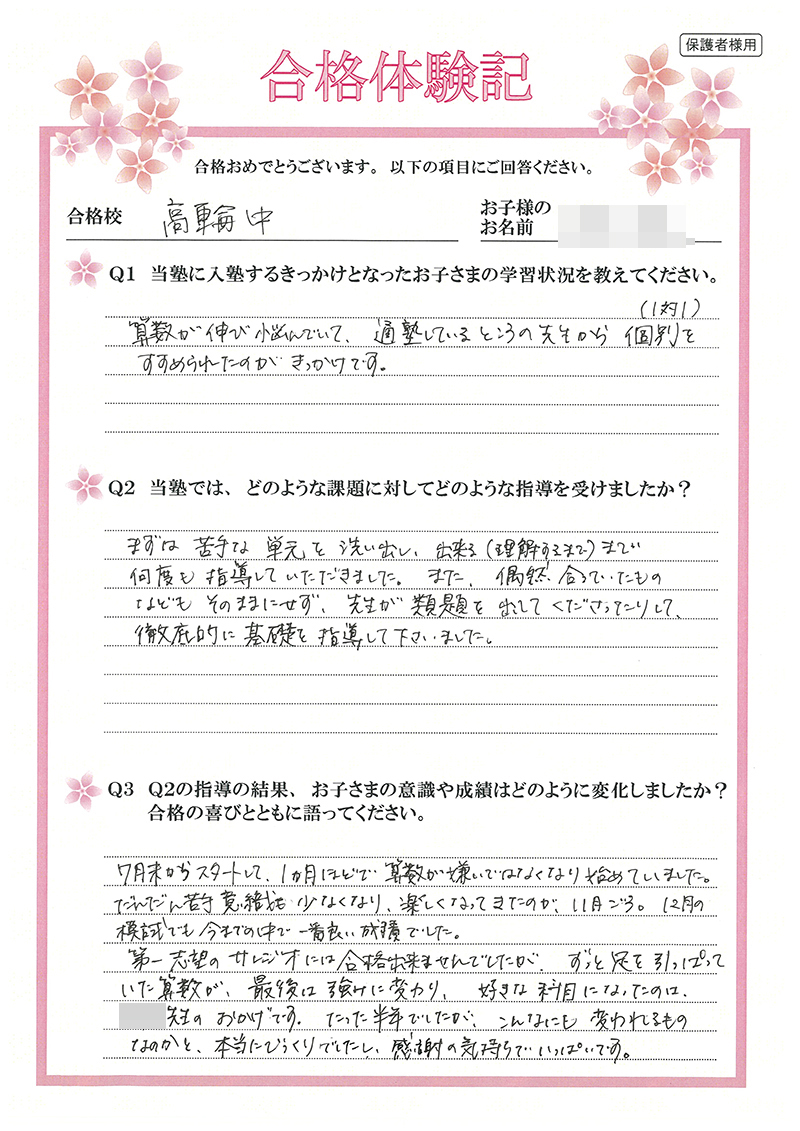 保護者様用
合格体験記
合格おめでとうございます。以下の項目にご回答ください。
合格校 高輪中
お子様の
お名前
Q1 当塾に入塾するきっかけとなったお子さまの学習状況を教えてください。
(1対1)
算数が伸び悩んでいて、通塾しているところの先生から個別を
すすめられたのがきっかけです。
Q2 当塾では、どのような課題に対してどのような指導を受けましたか？
まずは苦手な単元を洗い出し、出来る(理解するまで)まで
何度も指導していただきました。また、偶然合っていたもの
などもそのままにせず、先生が類題を出してくださったりして、
徹底的に基礎を指導して下さいました。
Q3 Q2の指導の結果、お子さまの意識や成績はどのように変化しましたか？
合格の喜びとともに語ってください。
7月末からスタートして、1か月ほどで算数が嫌いではなくなり始めていました。
だんだん苦手意識も少なくなり、楽しくなってきたのが、11月ごろ。12月の
模試でも今までの中で一番良い成績でした。
第一志望のサレジオには合格出来ませんでしたが、ずっと足を引っぱって
いた算数が、最後は強みに変わり、好きな科目になったのは、
先生のおかげです。たった半年でしたが、こんなにも変われるもの
なのかと、本当にびっくりでしたし、感謝の気持ちでいっぱいです。